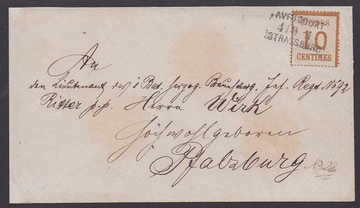 AVRICOURT
4/9
STRASSBURG
POSTES
10
CENTIMES
An
den Lieutenant des 1 Bat. Herzog. Braunschw. Inf. Regt. No 92
Ritter p.p. Herrn Wirk
Hochwohlgeboren
Pfalzburg